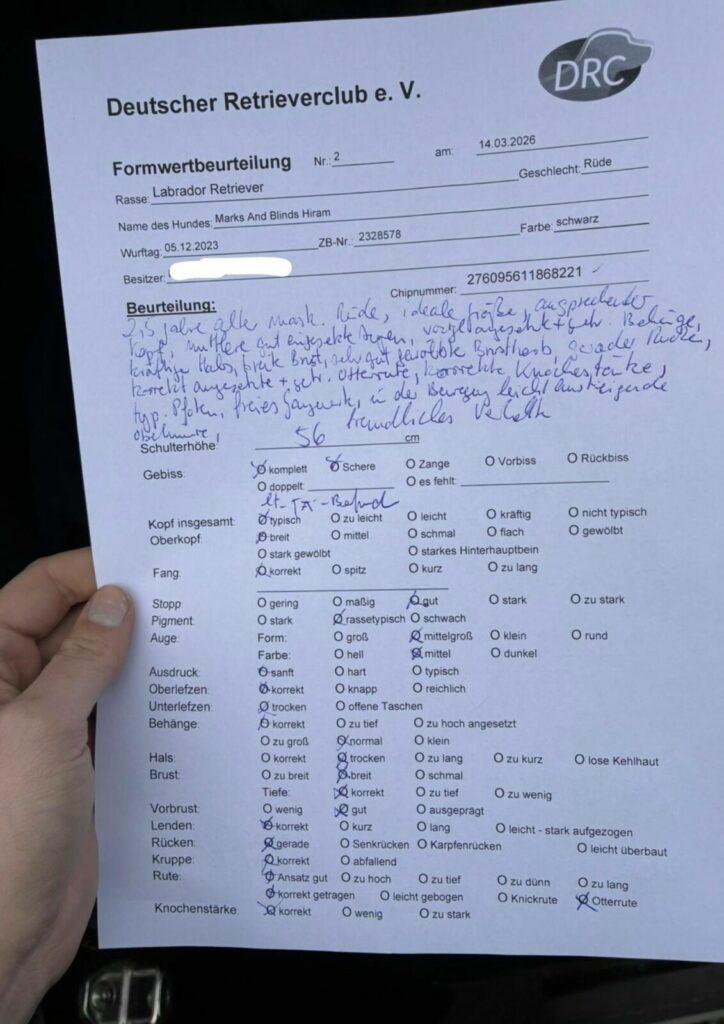 DRC
Deutscher Retrieverclub e. V.
Formwertbeurteilung Nr.: 2 am: 14.03.2026
Rasse: Labrador Retriever Geschlecht: Rüde
Name des Hundes: Marks And Blinds Hiram
Wurftag: 05.12.2023 ZB-Nr.: 2328578 Farbe: schwarz
Besitzer: Chipnummer: 276095611868221
Beurteilung:
2,5 Jahre alter mask. Rüde, ideale Größe, ansprechender
Kopf, mittlere gut eingesetzte Augen, vorzügl. angesetzte + getr. Behänge,
kräftiger Hals, breite Brust, sehr gut gewölbte Brustkorb, gerader Rücken,
korrekt angesetzte + getr. Otterrute, korrekte Knochenstärke,
typ. Pfoten, freies Gangwerk, in der Bewegung leicht ansteigende
freundliches
Schulterhöhe: 56 cm
Gebiss: O komplett O Schere O Zange O Vorbiss O Rückbiss
O doppelt: O es fehlt:
lt. TA-Befund
Kopf insgesamt: O typisch O zu leicht O leicht O kräftig O nicht typisch
Oberkopf: O breit O mittel O schmal O flach O gewölbt
O stark gewölbt O starkes Hinterhauptbein
Fang: O korrekt O spitz O kurz O zu lang
Stopp: O gering O mäßig O gut O stark O zu stark
Pigment: O stark O rassetypisch O schwach
Auge: Form: O groß O mittelgroß O klein O rund
Farbe: O hell O mittel O dunkel
Ausdruck: O sanft O hart O typisch
Oberlefzen: O korrekt O knapp O reichlich
Unterlefzen: O trocken O offene Taschen
Behänge: O korrekt O zu tief O zu hoch angesetzt
O zu groß O normal O klein
Hals: O korrekt O trocken O zu lang O zu kurz O lose Kehlhaut
Brust: O zu breit O breit O schmal
Tiefe: O korrekt O zu tief O zu wenig
Vorbrust: O wenig O gut O ausgeprägt
Lenden: O korrekt O kurz O lang O leicht - stark aufgezogen
Rücken: O gerade O Senkrücken O Karpfenrücken O leicht überbaut
Kruppe: O korrekt O abfallend
Rute: O Ansatz gut O zu hoch O zu tief O zu dünn O zu lang
O korrekt getragen O leicht gebogen O Knickrute O Otterrute
Knochenstärke: O korrekt O wenig O zu stark